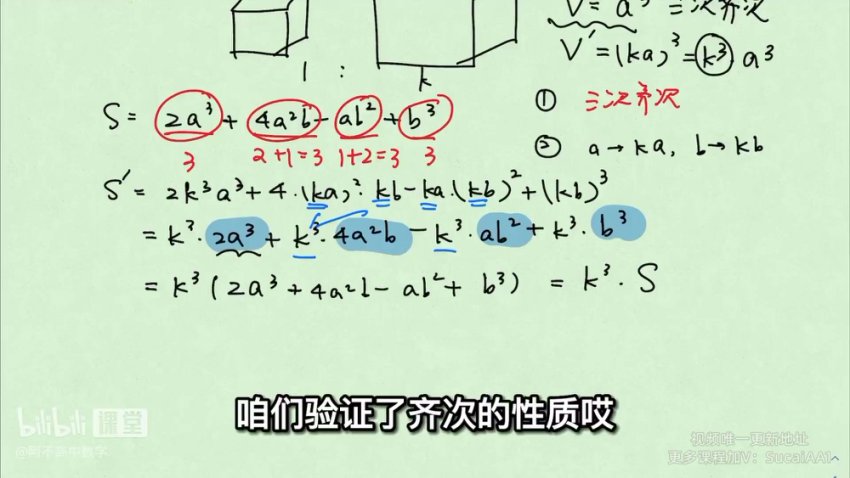 V = a³ 三次齐次
V′ = (ka)³ = k³·a³
1 : k
① 三次齐次
S = 2a³ + 4a²b - ab² + b³
3 2+1=3 1+2=3 3
② a→ka, b→kb
S′ = 2k³a³ + 4·(ka)²·kb - ka·(kb)² + (kb)³
= k³·2a³ + k³·4a²b - k³·ab² + k³·b³
= k³(2a³ + 4a²b - ab² + b³) = k³·S
咱们验证了齐次的性质哎
bilibili 课堂
视频唯一更新地址
更多课程加V：SucaiAA1